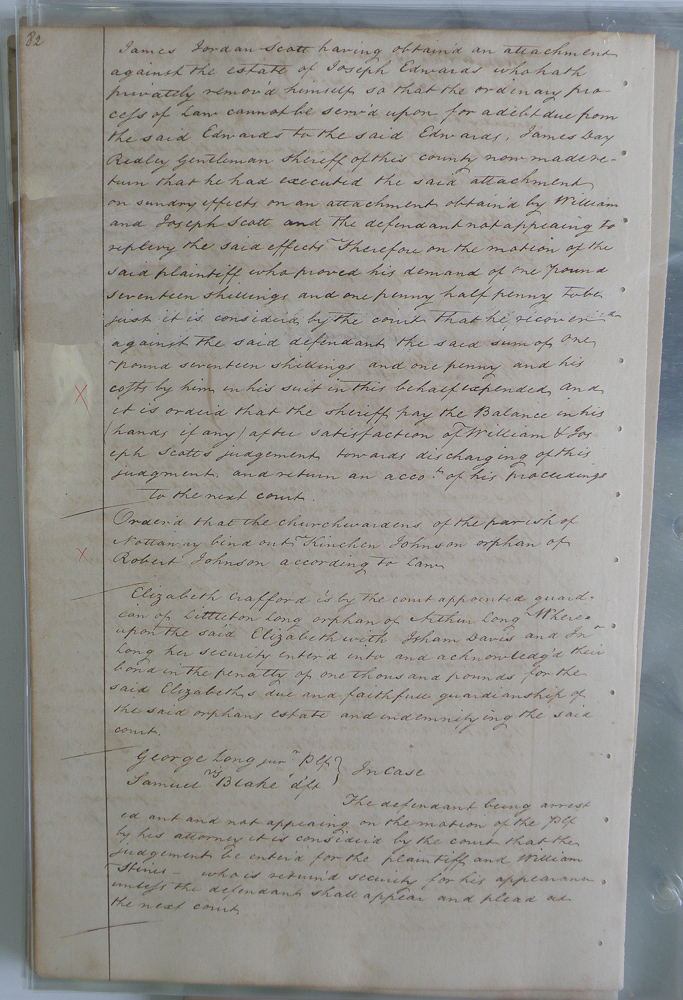 82
James Jordan Scott having obtain'd an attachment
against the estate of Joseph Edwards who hath
privately remov'd himself so that the ordinary pro-
cess of Law cannot be serv'd upon for a debt due from
the said Edwards to the said Edwards, James Day
Ridley Gentleman Shereff of this county now made re-
turn that he had executed the said attachment
on sundry effects on an attachment obtain'd by William
and Joseph Scott and the defendant not appearing to
replevy the said effects Therefore on the motion of the
said plaintiff who proved his demand of one pound
seventeen shillings and one penny half penny to be
just it is consider'd by the court that he recover
against the said defendant the said sum of one
pound seventeen shillings and one penny and his
costs by him in his suit in this behalf expended, and
it is order'd that the sheriff pay the Balance in his
(hands if any) after satisfaction of William & Jos
eph Scotts judgement towards discharging of this
judgment. and return an acco.t of his proceedings
to the next court.
Order'd that the churchwardens of the parish of
Nottaway bind out Kinchen Johnson orphan of
Robert Johnson according to Law
Elizabeth Crafford is by the court appointed guard-
ian of Littleton Long orphan of Arthur Long Where-
upon the said Elizabeth with Isham Davis and Jn.o
Long her security enter'd into and acknowledg'd their
bond in the penalty of one thousand pounds for the
said Elizabeths due and faithfull guardianship of
the said orphans estate and indemnifying the said
court.
George Long jun.r Plf } In Case
vs
Samuel Blake dft
The defendant being arrest
ed ant and not appearing on the motion of the Plf
by his attorney it is consider'd by the court that the
judgement be enter'd for the plaintiff and William
Hines - who is return'd security for his appearance
unless the defendant shall appear and plead at
the next court